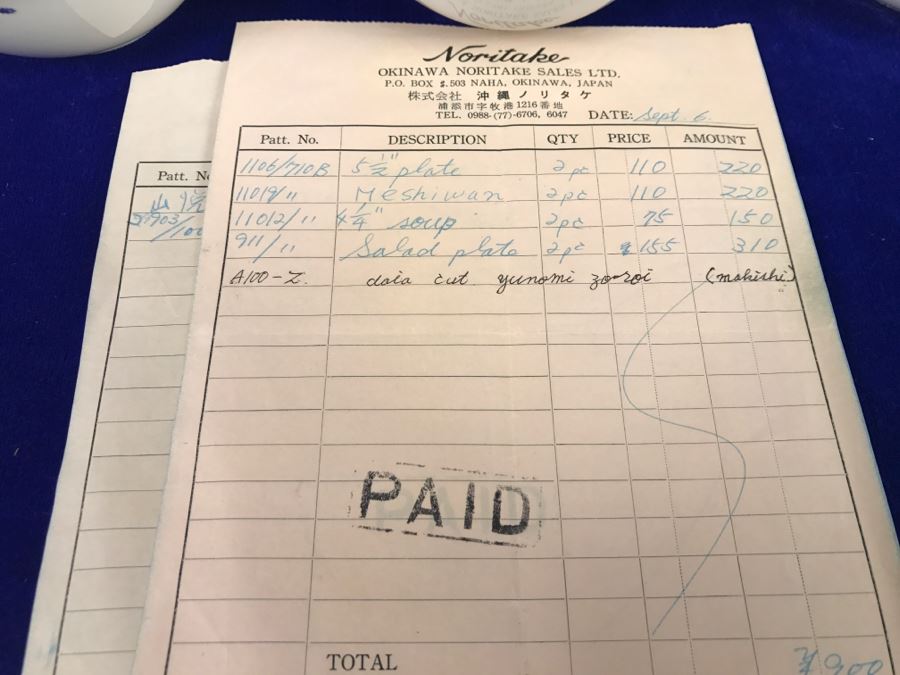 Noritake
OKINAWA NORITAKE SALES LTD.
P.O. BOX $.503 NAHA, OKINAWA, JAPAN
株式会社 沖縄ノリタケ
浦添市字牧港1216番地
TEL. 0988-(77)-6706, 6047 DATE: Sept 6.
Patt. No. DESCRIPTION QTY PRICE AMOUNT
1106/710B 5 1/2" plate 2 pc 110 220
11019/" Meshiwan 2 pc 110 220
11012/" 4 1/4" soup 2 pc 75 150
911/" Salad plate 2 pc 155 310
A100-Z. daia cut yunomi zo-roi (makishi)
PAID
TOTAL ¥900
Patt. N